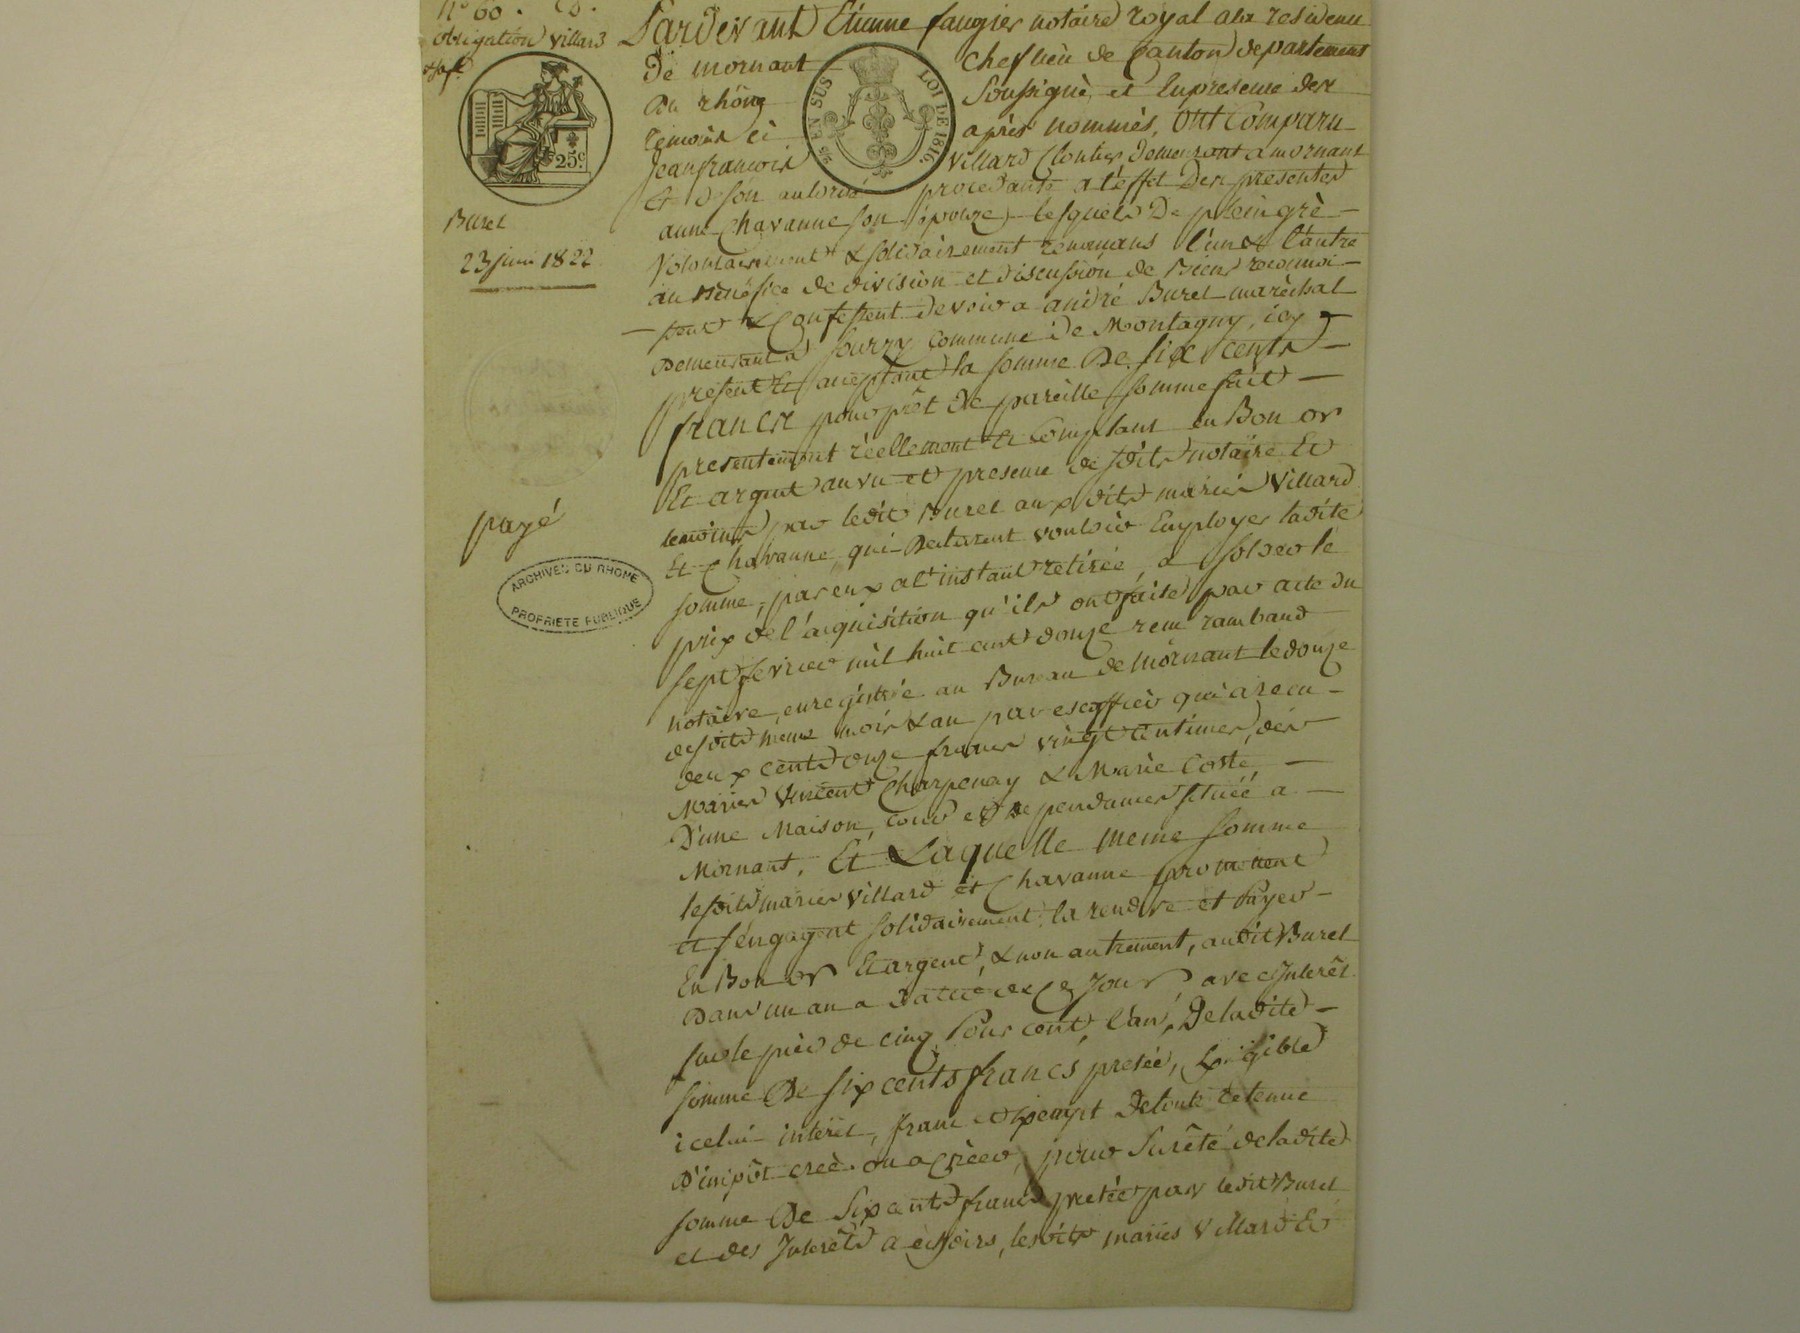 N° 60. D.
Obligation Villard
Pardevant Etienne faugier notaire royal ala residence
De mornant chef lieu de Canton departement
Du rhône Soussigné et Enpresence des
temoins ci après nommés, Ont Comparu
Jeanfrancois Villard Cloutier Demeurant a mornant
Et d son autorité procedante a l'effet Des presentes
anne Chavanne son épouze, lesquels De plein gré
Volontairement & solidairement renonçans l'un & l'autre
au Bénéfice de division et discussion de Biens reconnoi-
ssent & Confessent devoir a andré Buret maréchal
Demeurant a Sourzy Commune de Montagny, icy
present Et acceptant la somme De six cents
francs pour prêt de pareille somme fait
presentement réellement Et Comptant en Bon or
Et argent au vu et presence desdits notaire Et
temoins par ledit Buret aux dits mariés Villard
Et Chavanne, qui Declarent vouloir Employer ladite
somme, par eux a l'instant retirée, a solder le
prix de l'acquisition qu'ils ont faite par acte du
sept fevrier mil huit cent douze recu rambaud
notaire, enregistré au Bureau de Mornant le douze
desdits meme mois & an par escoffier qui a recu
deux cents onze francs vingt centimes, des
Mariés Vincent Charpenay & Marie Coste
D'une Maison, cour et dependances située a
Mornant. Et Laquelle meme somme
lesdits mariés Villard et Chavanne promettent
et s'engagent solidairement la rendre et Payer
En Bon or Et argent, & non autrement, audit Buret
Dans un an a Datter de Ce Jour, avec Interêt
sur le pied de cinq Pour cent, l'an, De ladite
somme De six cents francs pretée, Exigible
icelui interêt, franc & Exempt De toute retenue
D'impôt créé ou a Créer, pour Sureté de ladite
somme De Six cents francs pretée par ledit Buret
et des Interêts a échoirs, lesdits mariés Villard Et
25 EN SUS
LOI DE 1816.
25c.
Buret
23 juin 1822
payé
ARCHIVES DU RHONE
PROPRIETE PUBLIQUE